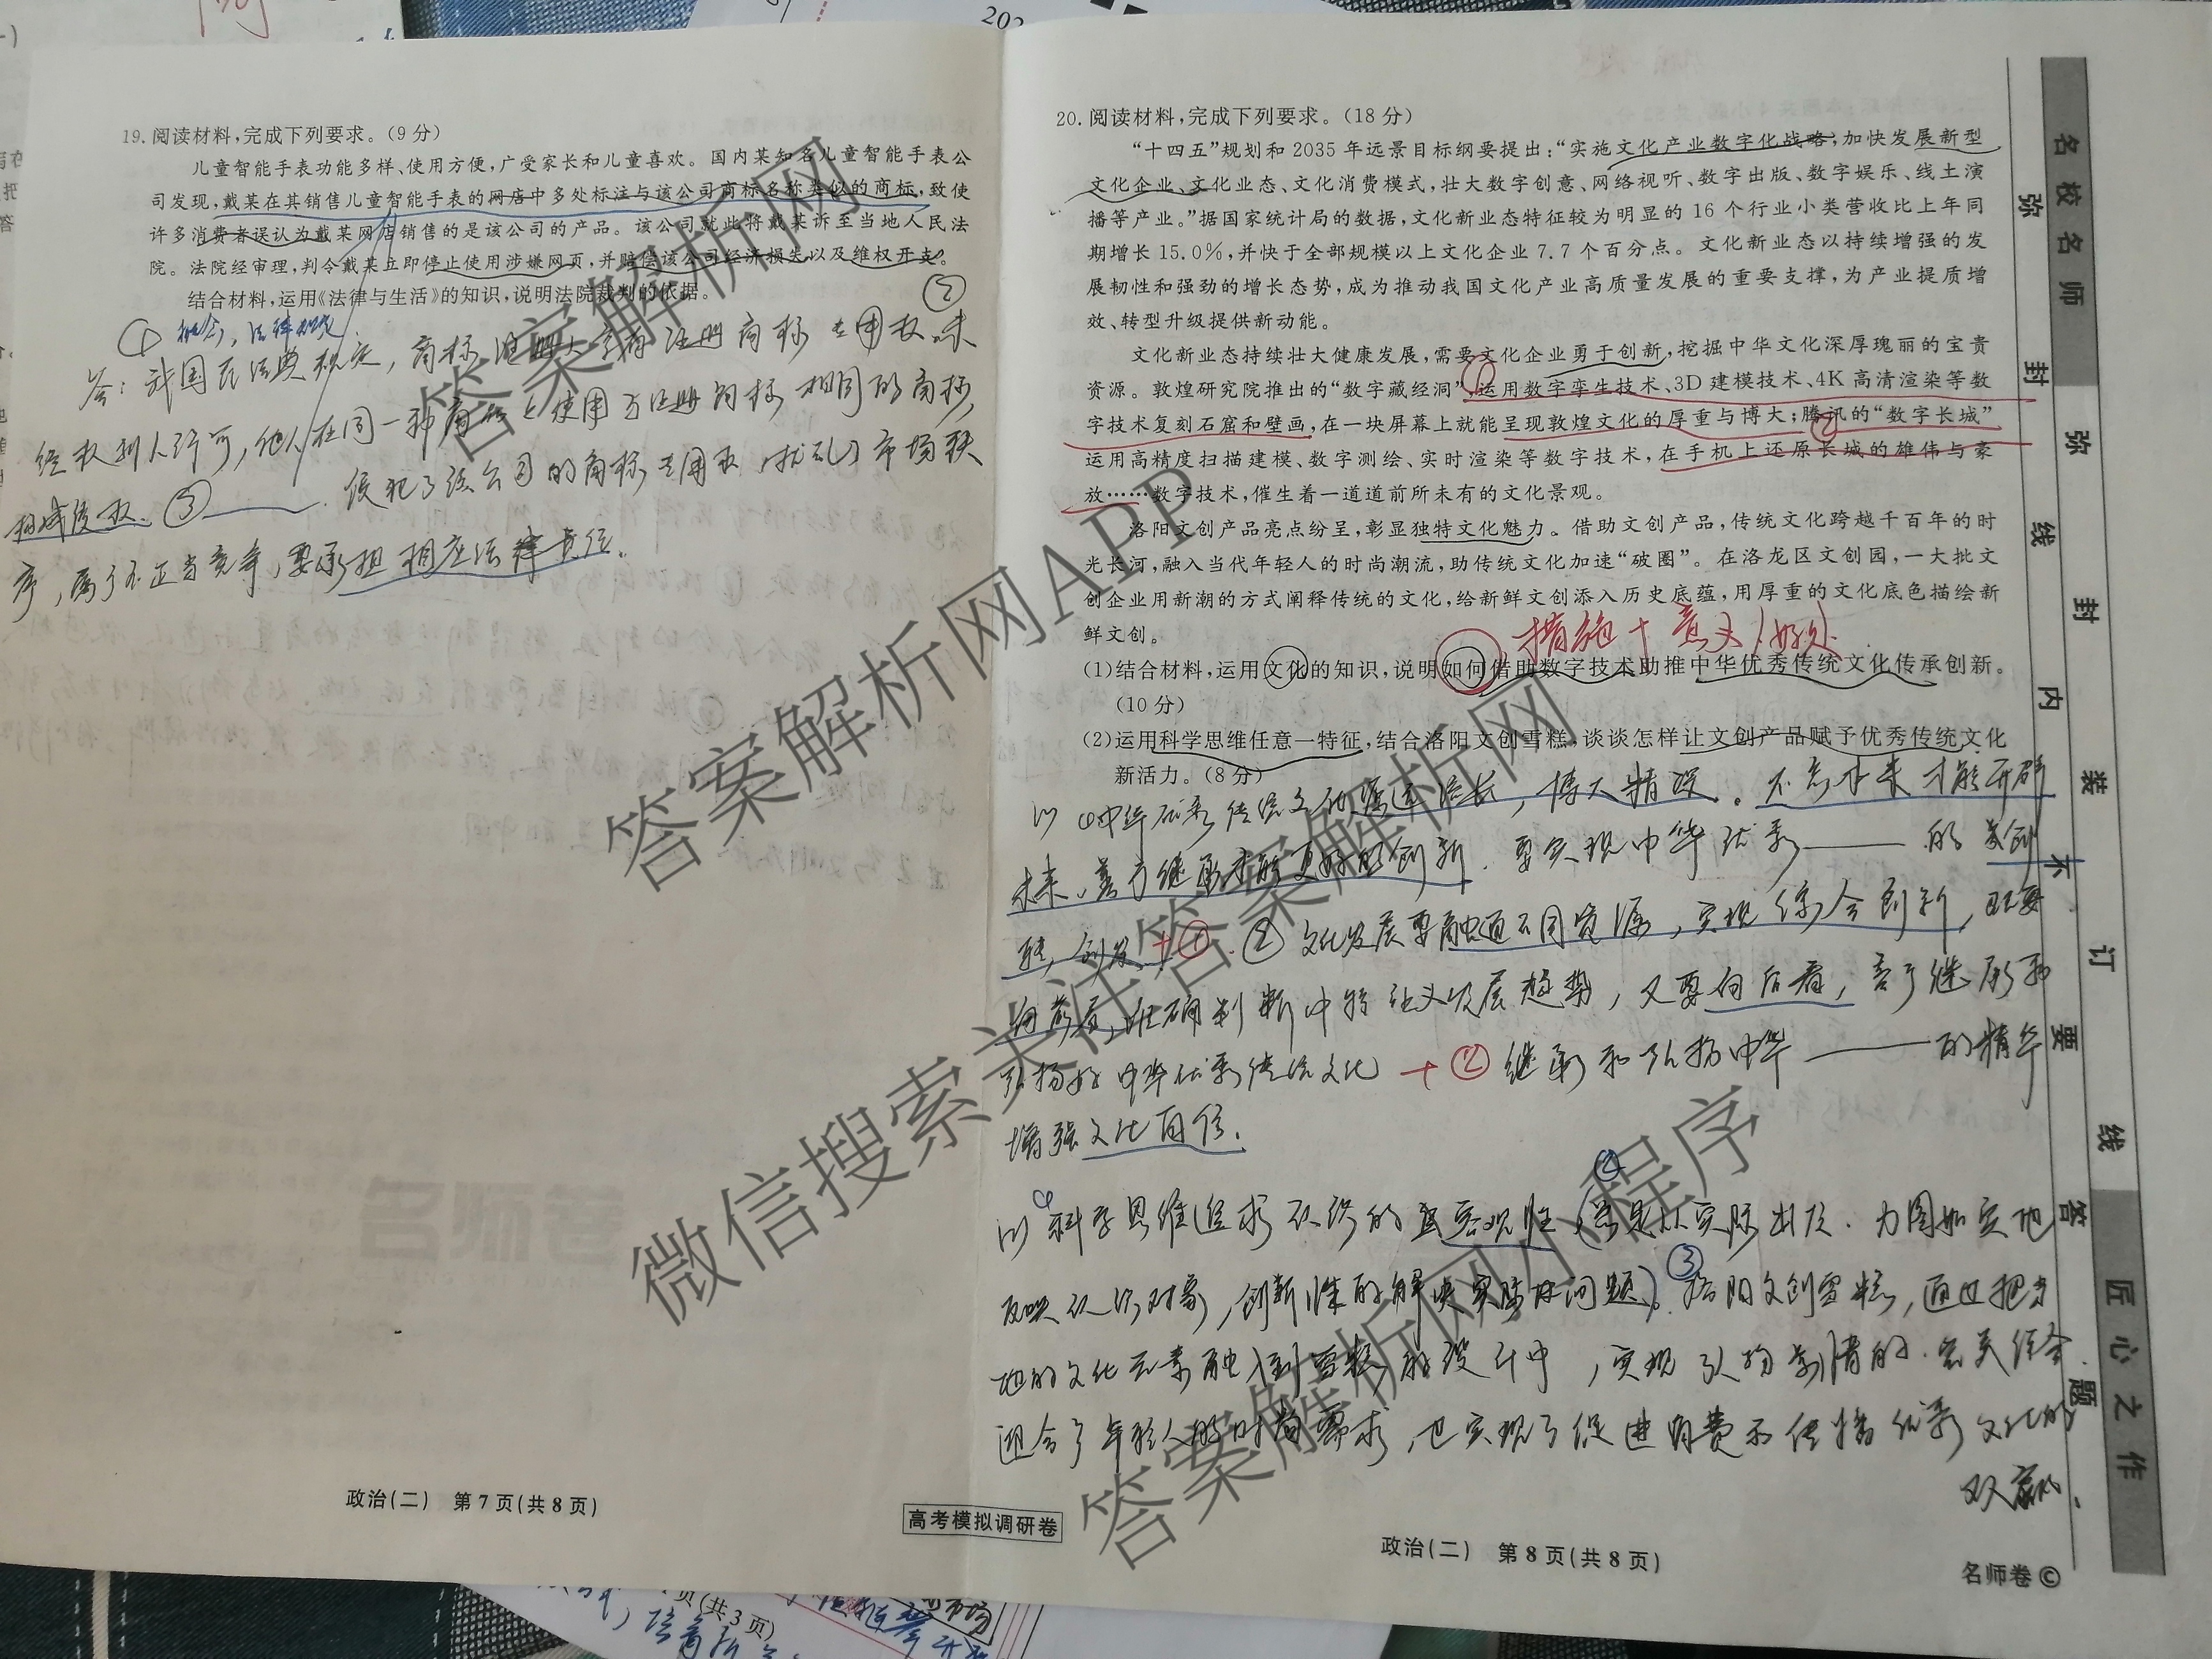 19.阅读材料,完成下列要求。(9分)
儿童智能手表功能多样、使用方便,广受家长和儿童喜欢。国内某知名儿童智能手表公
司发现,戴某在其销售儿童智能手表的网店中多处标注与该公司商标名称类似的商标,致使
许多消费者误认为戴某网店销售的是该公司的产品。该公司就此将戴某诉至当地人民法
院。法院经审理,判令戴某立即停止使用涉嫌网页,并赔偿该公司经济损失以及维权开支。
结合材料,运用《法律与生活》的知识,说明法院裁判的依据。
②
① 概念,法律规定
答:我国民法典规定,商标注册人享有注册商标专用权,未
经权利人许可,他人在同一种商品上使用与注册商标相同的商标,
构成侵权。③ 侵犯了该公司的商标专用权,扰乱了市场秩
序,属于不正当竞争,要承担相应法律责任。
名师卷
政治(二) 第7页(共8页)
高考模拟调研卷
20.阅读材料,完成下列要求。(18分)
“十四五”规划和2035年远景目标纲要提出:“实施文化产业数字化战略;加快发展新型
文化企业、文化业态、文化消费模式,壮大数字创意、网络视听、数字出版、数字娱乐、线上演
播等产业。”据国家统计局的数据,文化新业态特征较为明显的16个行业小类营收比上年同
期增长15.0%,并快于全部规模以上文化企业7.7个百分点。文化新业态以持续增强的发
展韧性和强劲的增长态势,成为推动我国文化产业高质量发展的重要支撑,为产业提质增
效、转型升级提供新动能。
文化新业态持续壮大健康发展,需要文化企业勇于创新,挖掘中华文化深厚瑰丽的宝贵
资源。敦煌研究院推出的“数字藏经洞”,运用数字孪生技术、3D建模技术、4K高清渲染等数
字技术复刻石窟和壁画,在一块屏幕上就能呈现敦煌文化的厚重与博大;腾讯的“数字长城”
运用高精度扫描建模、数字测绘、实时渲染等数字技术,在手机上还原长城的雄伟与豪
放……数字技术,催生着一道道前所未有的文化景观。
洛阳文创产品亮点纷呈,彰显独特文化魅力。借助文创产品,传统文化跨越千百年的时
光长河,融入当代年轻人的时尚潮流,助传统文化加速“破圈”。在洛龙区文创园,一大批文
创企业用新潮的方式阐释传统的文化,给新鲜文创添入历史底蕴,用厚重的文化底色描绘新
鲜文创。
措施+意义/好处
(1)结合材料,运用文化的知识,说明如何借助数字技术助推中华优秀传统文化传承创新。
(10分)
(2)运用科学思维任意一特征,结合洛阳文创雪糕,谈谈怎样让文创产品赋予优秀传统文化
新活力。(8分)
(1) ①中华优秀传统文化源远流长,博大精深。不忘本来才能开辟
未来,善于继承才能更好的创新。要实现中华优秀 的 创
转,创发。+① ② 文化发展要融通不同资源,实现综合创新,既要
向前看,准确判断中特社义发展趋势,又要向后看,善于继承和
弘扬好中华优秀传统文化 +② 继承和弘扬中华 的精华
增强文化自信。
①科学思维追求认识的客观性 ②(总是从实际出发,力图如实地
反映认识对象,创新性的解决实际问题)。③洛阳文创雪糕,通过把当
地的文化元素融入到雪糕的设计中,实现 的完美结合
迎合了年轻人的时尚需求,也实现了促进消费和传播优秀文化的
双赢。
政治(二) 第8页(共8页)
名师卷©
名校名师
匠心之作
弥 封 线 内 不 要 答 题
弥 封 装 订 线
答案解析网
答案解析网APP
答案解析网
微信搜索关注答案解析网
答案解析网小程序
页(共3页)